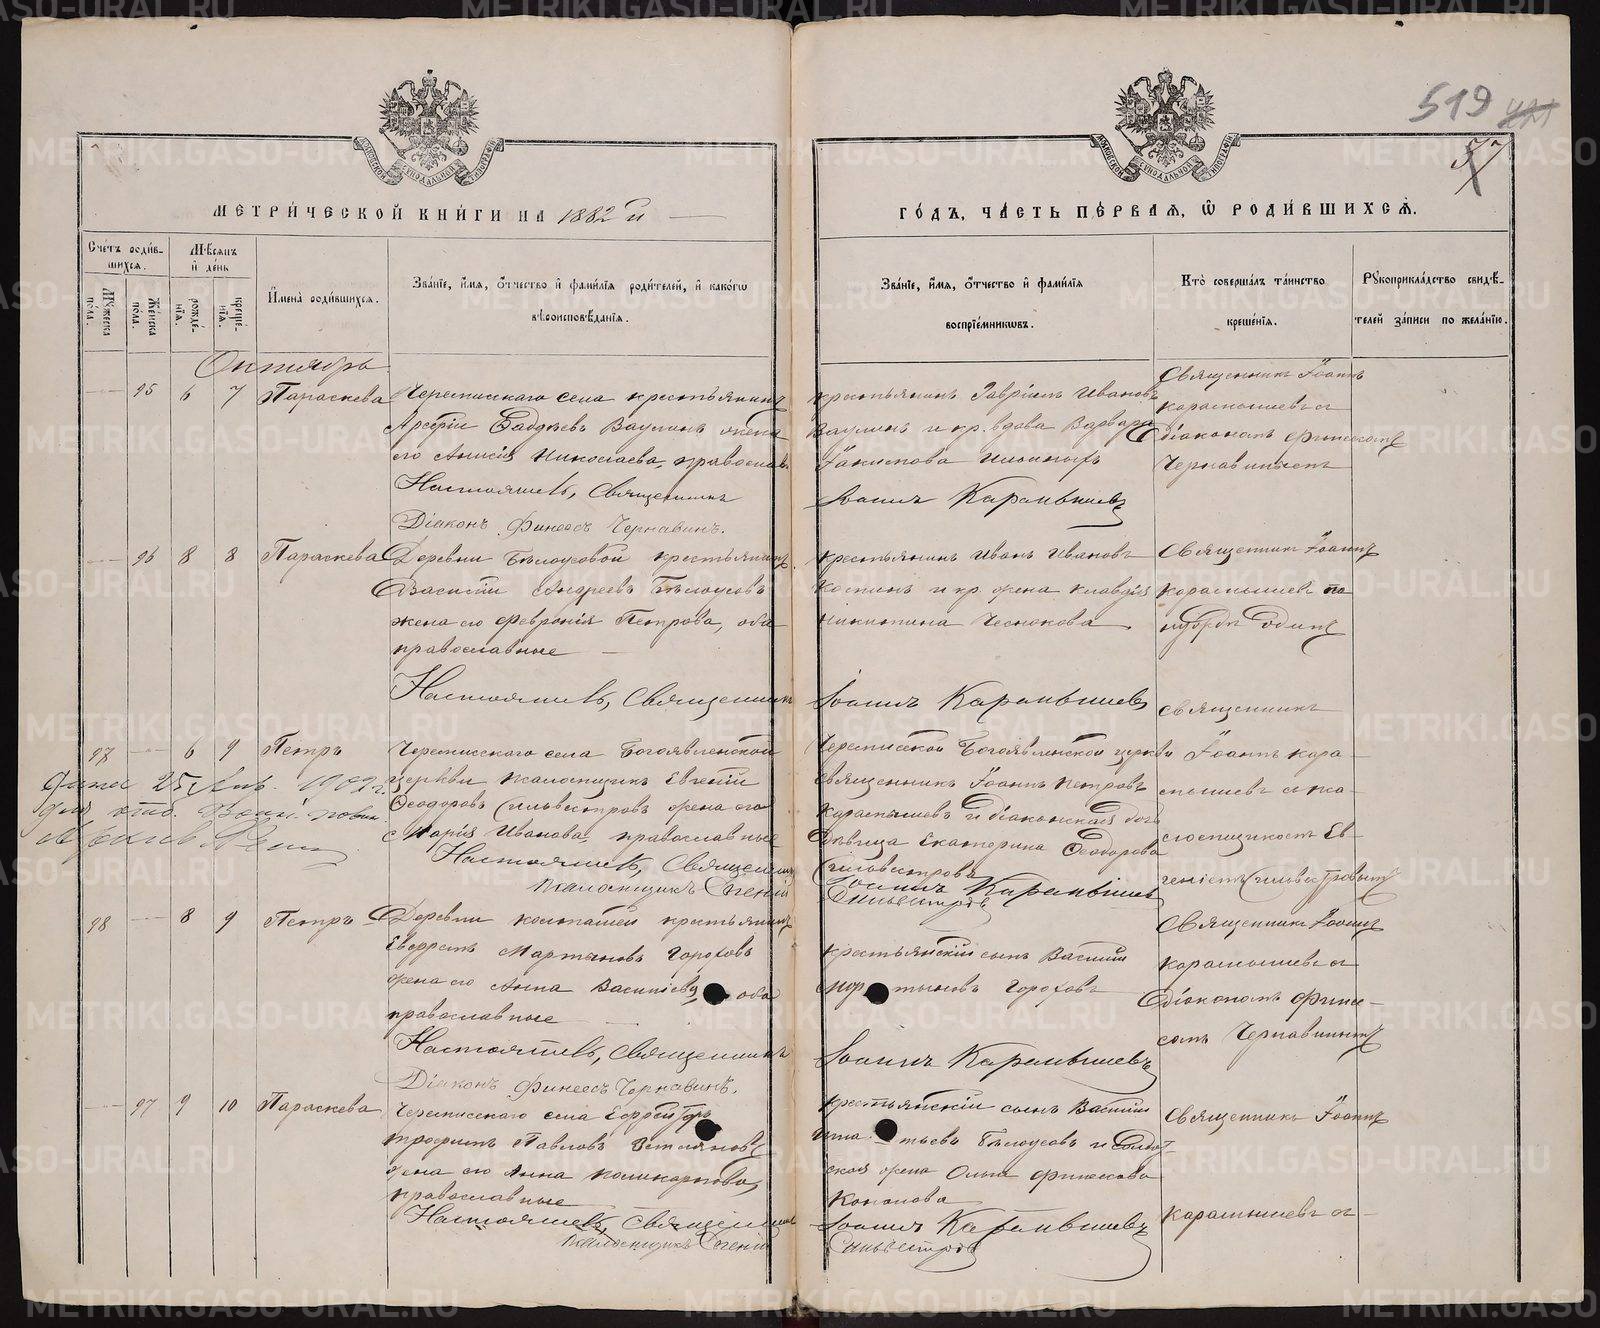 519
57
МЕТРИ́ЧЕСКОЙ КНИ́ГИ НА 1882 й
ГО́ДЪ, ЧА́СТЬ ПЕ́РВАЯ, Ѿ РОДИ́ВШИХСЯ.
Сче́тъ роди́в-
шихся.
Мѣ́сяцъ
и де́нь
Му́жеска по́ла.
Же́нска по́ла.
рожде́-
нїя.
креще́-
нїя.
И́мена̀ роди́вшихся.
Зва́нїе, и́мя, о́тчество и фами́лїя роди́телей, и како́гѡ
вѣроисповѣ́данїя.
Зва́нїе, и́мя, о́тчество и фами́лїя
воспрїе́мникѡвъ.
Кто̀ соверша́лъ та́инство
креще́нїя.
Рꙋкоприкла́дство свидѣ́-
телей за́писи по жела́нїю.
Октябрь
95 6 7 Параскева
Черемисскаго села крестьянинъ
Вауминъ жена
его Анисія Николаева, православ
Настоятель, Священникъ
Діаконъ Финеесъ Чернавинъ.
крестьянинъ Гавріилъ Ивановъ
Вауминъ и кр. вдова Варвара
Іакимова
Іоаннъ Карамышевъ
Священникъ Іоаннъ
Карамышевъ съ
діакономъ Финеесомъ
Чернавинымъ
96 8 8 Параскева
Деревни Бѣлоусовой крестьянинъ
Василій Андреевъ Бѣлоусовъ
жена его Февронія Петрова, оба
православные
Настоятель, Священникъ
крестьянинъ Иванъ Ивановъ
Костинъ и кр. жена Клавдія
Никитина Чеснокова
Іоаннъ Карамышевъ
Священникъ Іоаннъ
Карамышевъ по
нуждѣ одинъ
97 6 9 Петръ
Черемисскаго села Богоявленской
церкви псаломщикъ Евгеній
Ѳеодоровъ Сильвестровъ жена его
Марія Иванова, православные
Настоятель, Священникъ
Псаломщикъ Евгеній
Черемисской Богоявленской церкви
священникъ Іоаннъ Петровъ
Карамышевъ и діаконская дочь
дѣвица Екатерина Ѳеодорова
Сильвестрова
Іоаннъ Карамышевъ
Сильвестровъ
Священникъ
Іоаннъ Кара-
мышевъ съ пса-
ломщикомъ Ев-
геніемъ Сильвестровымъ
25 Янв. 1902 г.
98 8 9 Петръ
Деревни Колташей крестьянинъ
Мартыновъ Гороховъ
жена его Анна Василіева оба
православные
Настоятель, Священникъ
Діаконъ Финеесъ Чернавинъ.
крестьянскій сынъ Василій
Мартыновъ Гороховъ
Іоаннъ Карамышевъ
Священникъ Іоаннъ
Карамышевъ съ
діакономъ Фине-
сомъ Чернавинымъ
97 9 10 Параскева
Черемисскаго села Ефрейторъ
Трофимъ Павловъ
жена его Анна Поликарпова,
православные
Настоятель, Священникъ
Псаломщикъ Евгеній
крестьянскій сынъ Василій
Игнатьевъ Бѣлоусовъ и Солдат-
ская жена Ольга Финеесова
Кононова
Іоаннъ Карамышевъ
Сильвестровъ
Священникъ Іоаннъ
Карамышевъ съ
METRIKI.GASO-URAL.RU